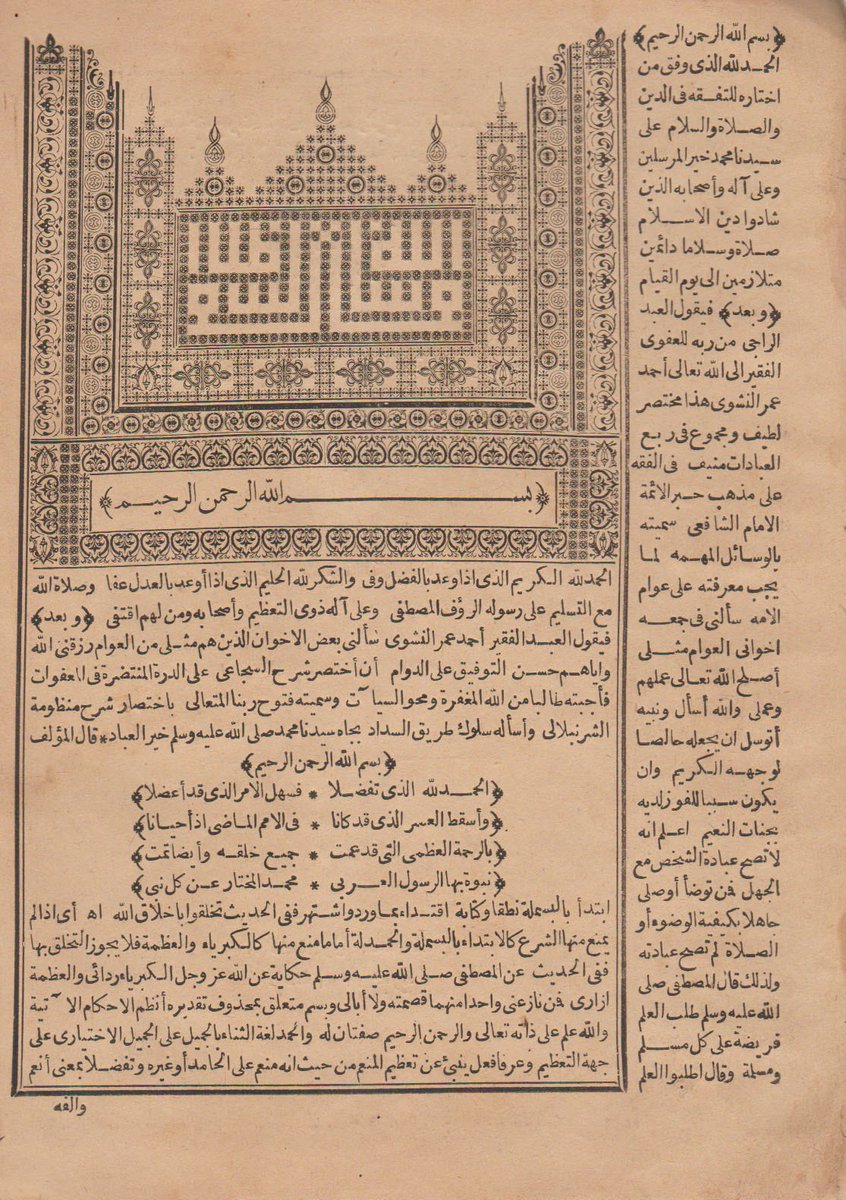 ﴿بسم الله الرحمن الرحيم﴾
الحمد لله الذى وفق من
اختاره للتفقه فى الدين
والصلاة والسلام على
سيدنا محمد خير المرسلين
وعلى آله وأصحابه الذين
شادوا دين الاسلام
صلاة وسلاما دائمين
متلازمين الى يوم القيام
﴿وبعد﴾ فيقول العبد
الراجى من ربه للعفوى
الفقير الى الله تعالى أحمد
عمر النشوى هذا مختصر
لطيف ومجموع فى ربع
العبادات منيف فى الفقه
على مذهب حبر الائمة
الامام الشافعى سميته
بالوسائل المهمه لما
يجب معرفته على عوام
الامه سألنى فى جمعه
اخوانى العوام مثلى
أصلح الله تعالى عملهم
وعملى والله أسأل ونبيه
أتوسل ان يجعله خالصا
لوجهه الكريم وان
يكون سببا للفوز لديه
بجنات النعيم اعلم انه
لا تصح عبادة الشخص مع
الجهل فمن توضأ أو صلى
جاهلا بكيفية الوضوء أو
الصلاة لم تصح عبادته
ولذلك قال المصطفى صلى
الله عليه وسلم طلب العلم
فريضة على كل مسلم
ومسلمة وقال اطلبوا العلم
﴿بسم الله الرحمن الرحيم﴾
الحمد لله الكريم الذى اذا وعد بالفضل وفى والشكر لله الحليم الذى اذا أوعد بالعدل عفا وصلاة الله
مع التسليم على رسوله الرؤف المصطفى وعلى آله ذوى التعظيم وأصحابه ومن لهم اقتفى ﴿وبعد﴾
فيقول العبد الفقير أحمد عمر النشوى سألنى بعض الاخوان الذين هم مثلى من العوام رزقنى الله
واياهم حسن التوفيق على الدوام أن أختصر شرح السجاعى على الدرة المنتضرة فى المعفوات
فأجبته طالبا من الله المغفرة ومحو السيآت وسميته فتوح ربنا المتعالى باختصار شرح منظومة
الشرنبلالى وأسأله سلوك طريق السداد بجاه سيدنا محمد صلى الله عليه وسلم خير العباد * قال المؤلف
﴿بسم الله الرحمن الرحيم﴾
﴿الحمد لله الذى تفضلا * فسهل الامر الذى قد أعضلا﴾
﴿وأسقط العسر الذى قد كانا * فى الامم الماضى اذ أحيانا﴾
﴿بالرحمة العظمى التى قد عمت * جميع خلقه وأيضا تمت﴾
﴿نبوة بها الرسول العربى * محمد المختار عن كل نبى﴾
ابتدأ بالبسملة نطقا وكتابة اقتداء بما ورد واشتهر ففى الحديث تخلقوا باخلاق الله اه أى اذا لم
يمنع منها الشرع كالابتداء بالبسملة والحمدلة أما ما منع منها كالكبرياء والعظمة فلا يجوز التخلق بها
ففى الحديث عن المصطفى صلى الله عليه وسلم حكاية عن الله عز وجل الكبرياء ردائى والعظمة
ازارى فمن نازعنى واحدا منهما قصمته ولا أبالى وبسم متعلق بمحذوف تقديره أنظم الاحكام الآتية
والله علم على ذاته تعالى والرحمن الرحيم صفتان له والحمد لغة الثناء بالجميل على الجميل الاختيارى على
جهة التعظيم وعرفا فعل ينبئ عن تعظيم المنعم من حيث انه منعم على الحامد أو غيره وتفضلا بمعنى أنعم
والفه